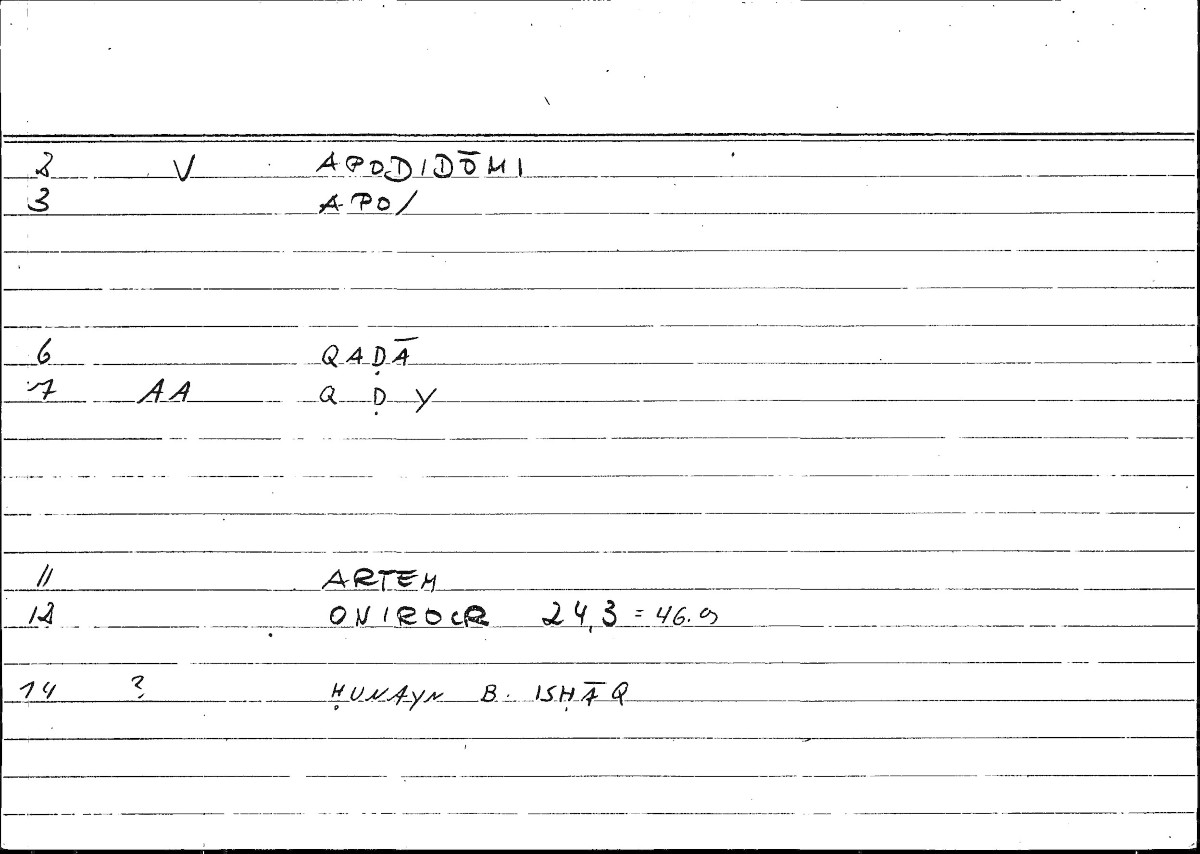 2 V APODIDŌMI
3 APO/
6 QAḌĀ
7 AA Q Ḍ Y
11 ARTEM
12 ONIROCR 24,3 = 46.9
14 ? ḤUNAYN B. ISḤĀQ